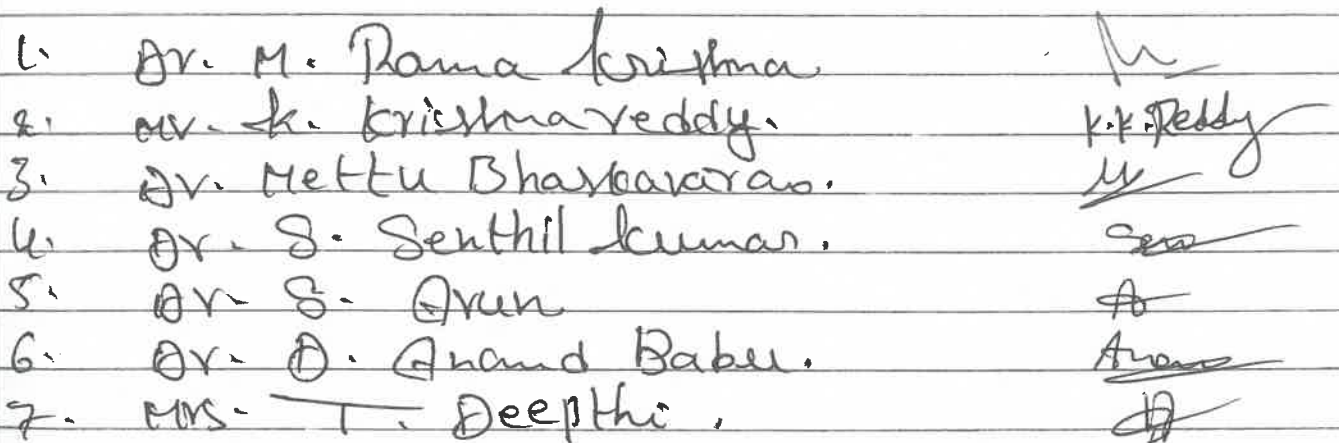 1. Dr. M. Rama Krishna
2. Mr. K. Krishnareddy. K.K.Reddy
3. Dr. Mettu Bhaskararao.
4. Dr. S. Senthil Kumar.
5. Dr. S. Arun
6. Dr. D. Anand Babu.
7. Mrs. T. Deepthi.